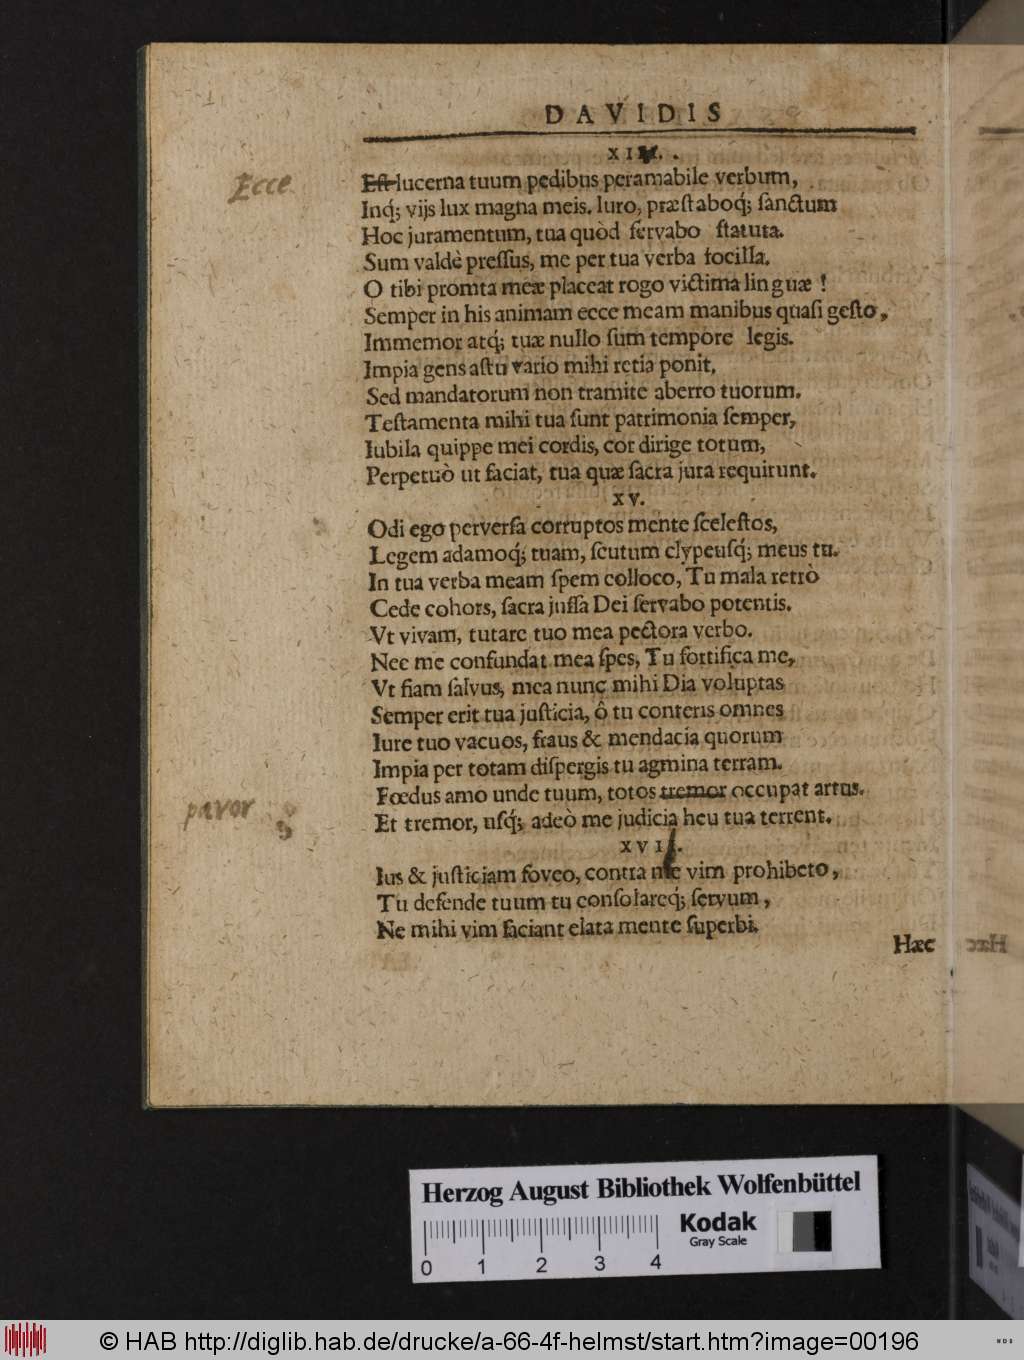 DAVIDIS
XIV.
Ecce
Est lucerna tuum pedibus peramabile verbum,
Inq́; vijs lux magna meis. Iuro, præstaboq́; sanctum
Hoc juramentum, tua quòd servabo statuta.
Sum valdè pressus, me per tua verba focilla.
O tibi promta meæ placeat rogo victima linguæ !
Semper in his animam ecce meam manibus quasi gesto,
Immemor atq́; tuæ nullo sum tempore legis.
Impia gens astu vario mihi retia ponit,
Sed mandatorum non tramite aberro tuorum.
Testamenta mihi tua sunt patrimonia semper,
Iubila quippe mei cordis, cor dirige totum,
Perpetuò ut faciat, tua quæ sacra jura requirunt.
XV.
Odi ego perversa corruptos mente scelestos,
Legem adamoq́; tuam, scutum clypeusq́; meus tu.
In tua verba meam spem colloco, Tu mala retrò
Cede cohors, sacra jussa Dei servabo potentis.
Vt vivam, tutare tuo mea pectora verbo.
Nec me confundat mea spes, Tu fortifica me,
Vt fiam salvus, mea nunc mihi Dia voluptas
Semper erit tua justicia, ô tu conteris omnes
Iure tuo vacuos, fraus & mendacia quorum
Impia per totam dispergis tu agmina terram.
Fœdus amo unde tuum, totos tremor occupat artus.
pavor
Et tremor, usq́; adeò me judicia heu tua terrent.
XVI.
Ius & justiciam foveo, contra me vim prohibeto,
Tu defende tuum tu consolareq́; servum,
Ne mihi vim faciant elata mente superbi.
Hæc
Herzog August Bibliothek Wolfenbüttel
0 1 2 3 4
Kodak
Gray Scale
© HAB http://diglib.hab.de/drucke/a-66-4f-helmst/start.htm?image=00196